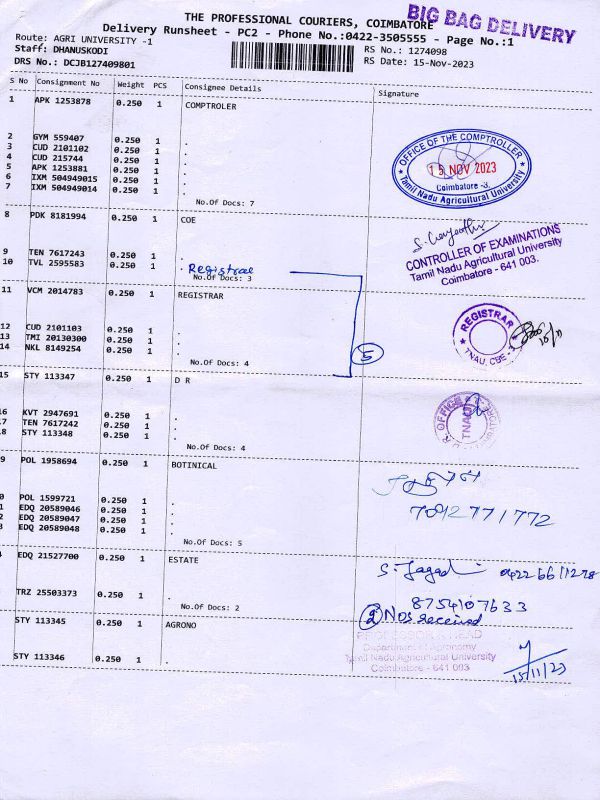 THE PROFESSIONAL COURIERS, COIMBATORE
BIG BAG DELIVERY
Delivery Runsheet - PC2 - Phone No.:0422-3505555 - Page No.:1
Route: AGRI UNIVERSITY -1
RS No.: 1274098
Staff: DHANUSKODI
RS Date: 15-Nov-2023
DRS No.: DCJB127409801
S No Consignment No Weight PCS Consignee Details Signature
1 APK 1253878 0.250 1 COMPTROLER
2 GYM 559407 0.250 1 .
3 CUD 2101102 0.250 1 .
4 CUD 215744 0.250 1 .
5 APK 1253881 0.250 1 .
6 IXM 504949015 0.250 1 .
7 IXM 504949014 0.250 1 .
No.Of Docs: 7
OFFICE OF THE COMPTROLLER
15 NOV 2023
Coimbatore -3.
Tamil Nadu Agricultural University
8 PDK 8181994 0.250 1 COE
9 TEN 7617243 0.250 1 .
10 TVL 2595583 0.250 1 . Registrar
No.Of Docs: 3
CONTROLLER OF EXAMINATIONS
Tamil Nadu Agricultural University
Coimbatore - 641 003.
11 VCM 2014783 0.250 1 REGISTRAR
12 CUD 2101103 0.250 1 .
13 TMI 20130300 0.250 1 .
14 NKL 8149254 0.250 1 .
No.Of Docs: 4
5
REGISTRAR
TNAU, CBE - 3
15/11
15 STY 113347 0.250 1 D R
16 KVT 2947691 0.250 1 .
17 TEN 7617242 0.250 1 .
18 STY 113348 0.250 1 .
No.Of Docs: 4
OFFICE
TNAU
9 POL 1958694 0.250 1 BOTINICAL
0 POL 1599721 0.250 1 .
1 EDQ 20589046 0.250 1 .
2 EDQ 20589047 0.250 1 .
3 EDQ 20589048 0.250 1 .
No.Of Docs: 5
7092771772
4 EDQ 21527700 0.250 1 ESTATE
TRZ 25503373 0.250 1 .
No.Of Docs: 2
0422 6611278
8754107633
2 Nos received
STY 113345 0.250 1 AGRONO
STY 113346 0.250 1 .
PROFESSOR & HEAD
Department of Agronomy
Tamil Nadu Agricultural University
Coimbatore - 641 003
15/11/23